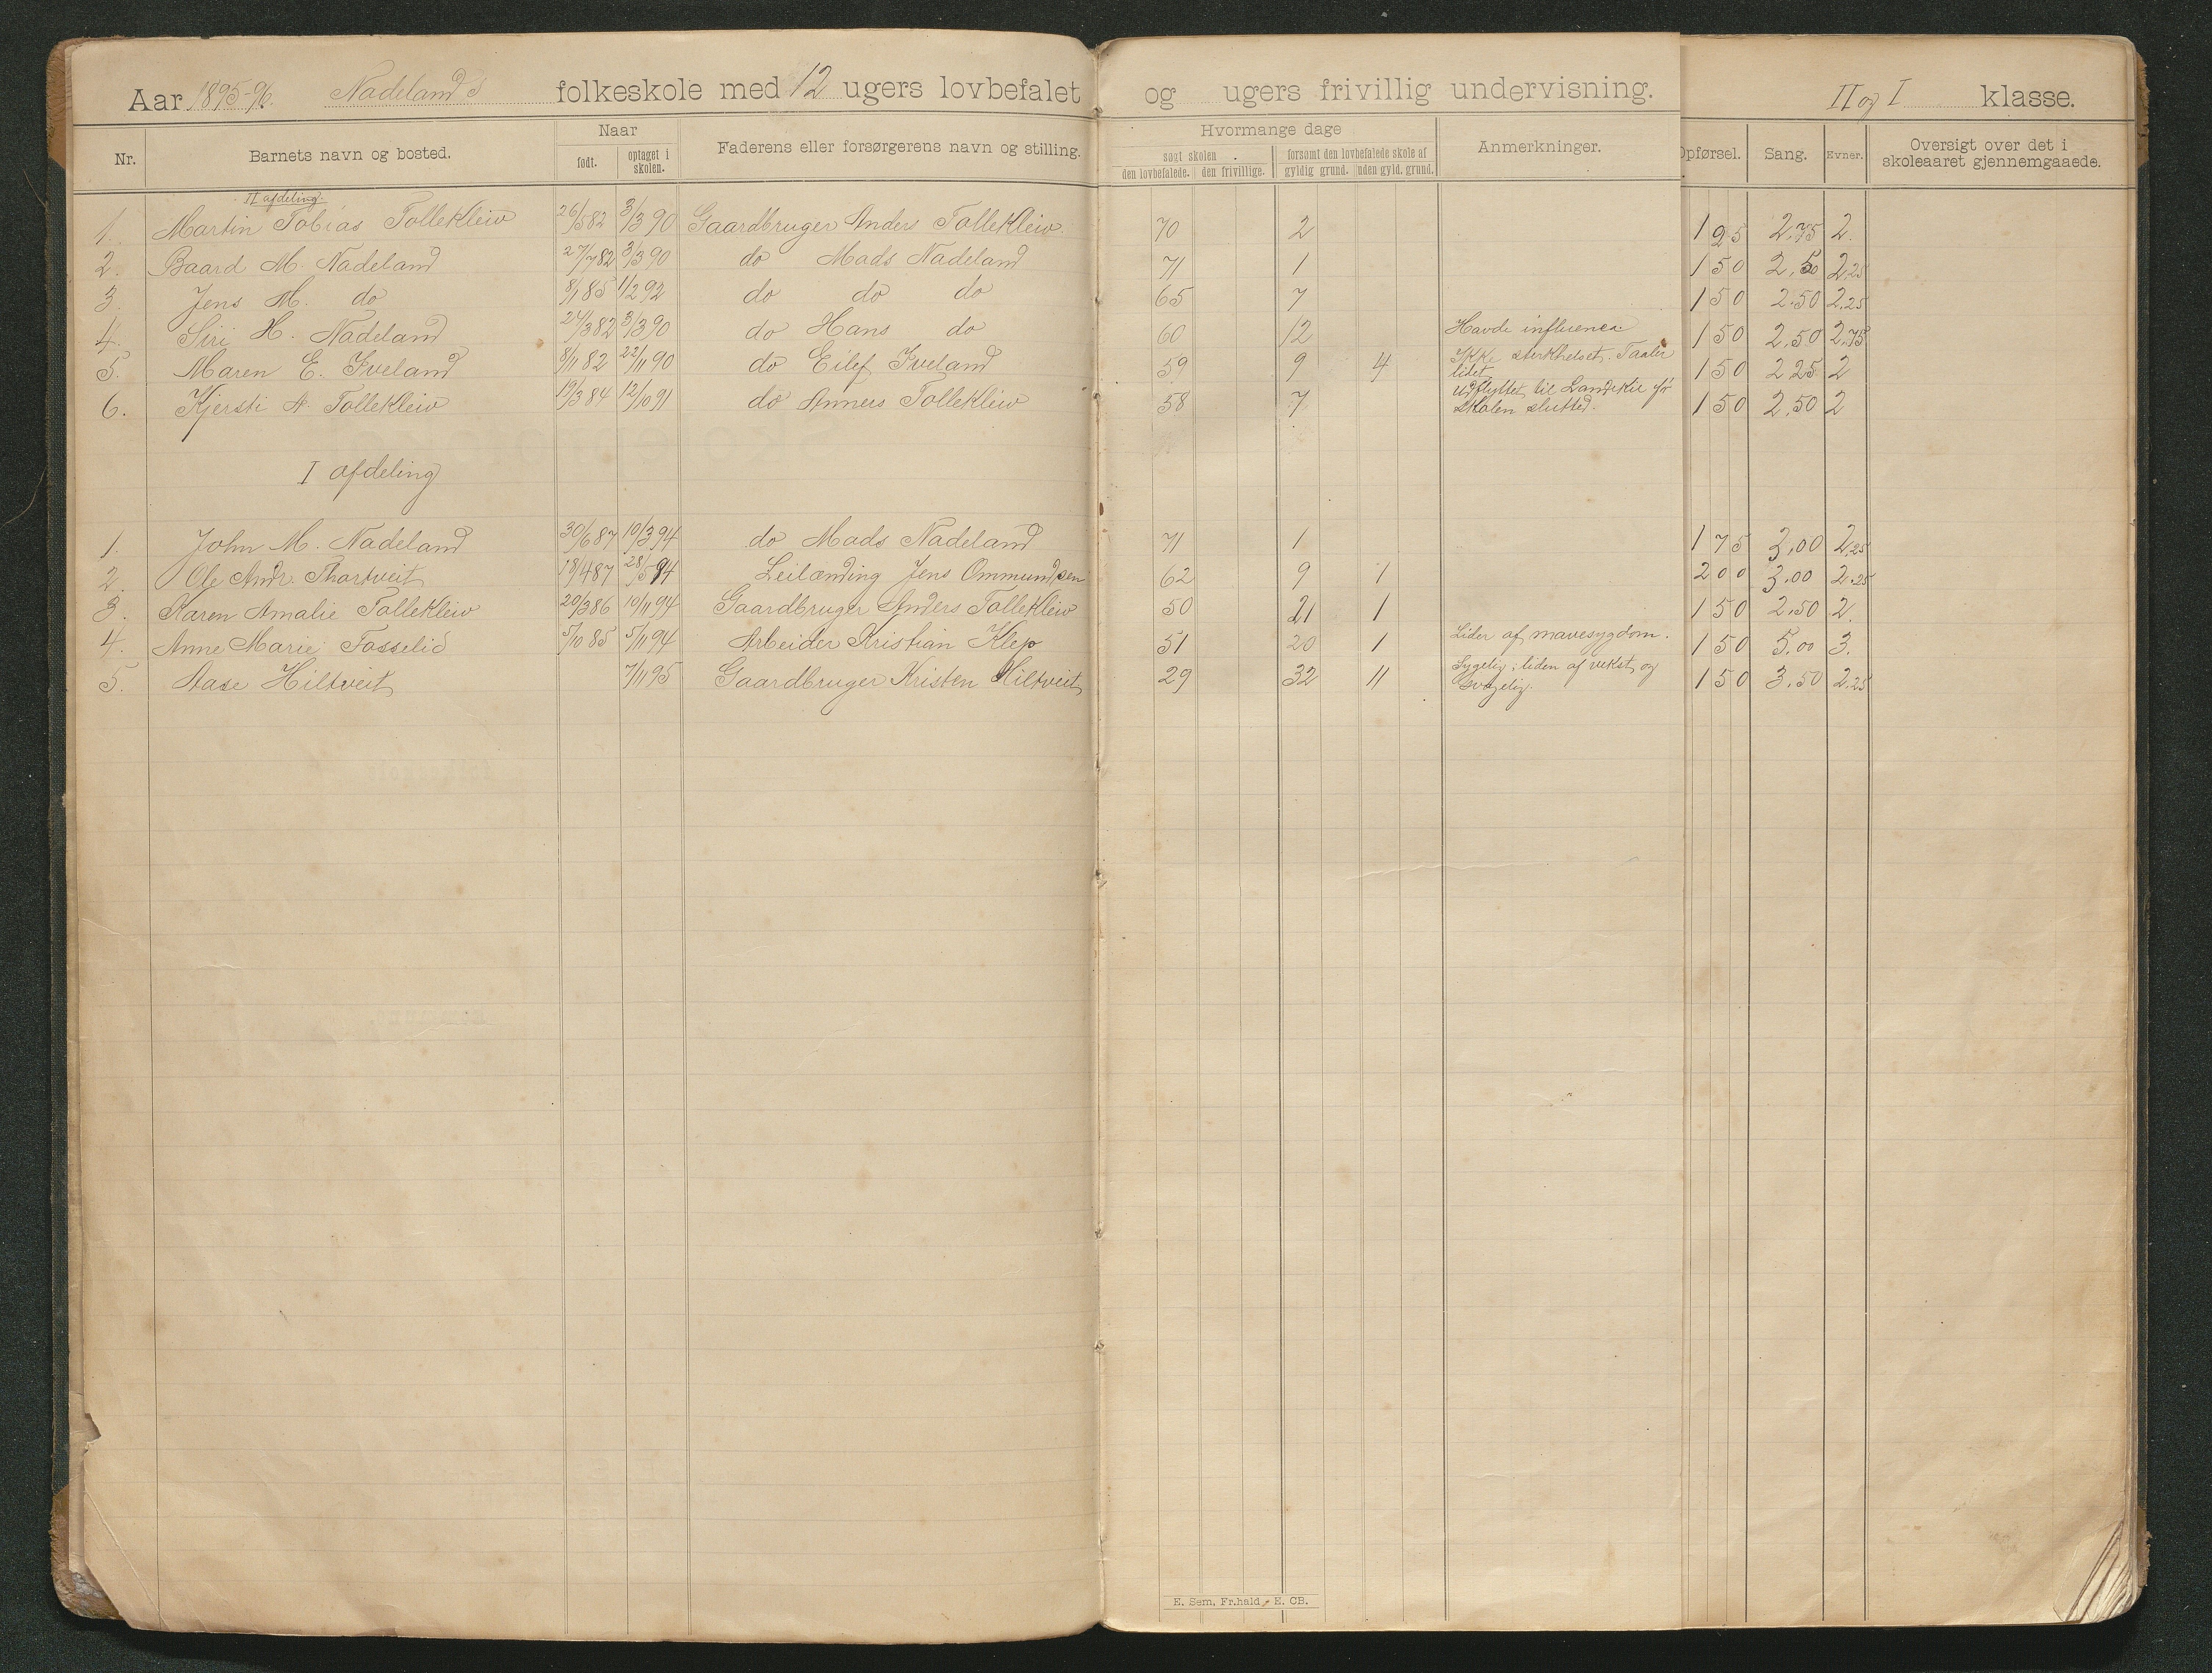 Aar 1895-96. Nadelands folkeskole med 12 ugers lovbefalet og ugers frivillig undervisning. II og I klasse.
Nr. Barnets navn og bosted. Naar født. optaget i skolen. Faderens eller forsørgerens navn og stilling. Hvormange dage søgt skolen den lovbefalede. den frivillige. forsømt den lovbefalede skole af gyldig grund. uden gyld. grund. Anmerkninger. Opførsel. Sang. Evner. Oversigt over det i skoleaaret gjennemgaaede.
II afdeling.
1. Martin Tobias Tollekleiv 26/5 82 3/3 90 Gaardbruger Anders Tollekleiv. 70 2 1 25 2,75 2.
2. Baard M. Nadeland 27/7 82 3/3 90 do Mads Nadeland 71 1 1 50 2,50 2,25
3. Jens M. do 8/1 85 1/2 92 do do do 65 7 1 50 2.50 2,25
4. Siri H. Nadeland 24/3 82 3/3 90 do Hans do 60 12 Havde influenca 1 50 2,50 2,75
5. Maren E. Iveland 8/11 82 22/11 90 do Eilef Iveland 59 9 4 Ikke sterkhelset. Taaler lidet 1 50 2 25 2
6. Kjersti A. Tollekleiv 19/3 84 12/10 91 do Anners Tollekleiv 58 7 udflyttet til før skolen slutted. 1 50 2,50 2
I afdeling
1. John M. Nadeland 30/6 87 10/3 94 do Mads Nadeland 71 1 1 75 3,00 2,25
2. Ole Andr. Thortveit 18/4 87 28/5 94 Leilænding Jens Ommundsen 62 9 1 2 00 3.00 2.25
3. Karen Amalie Tollekleiv 20/3 86 10/11 94 Gaardbruger Anders Tollekleiv 50 21 1 1 50 2.50 2.
4. Anne Marie Fosselid 5/10 85 5/11 94 Arbeider Kristian Klep 51 20 1 Lider af mavesygdom. 1 50 5,00 3.
5. Aase Hiltveit 7/11 95 Gaardbruger Kristen Hiltveit 29 32 11 Sygelig; liden af vekst og svagelig. 1 50 3,50 2,25
E. Sem, Fr.hald, E. CB.